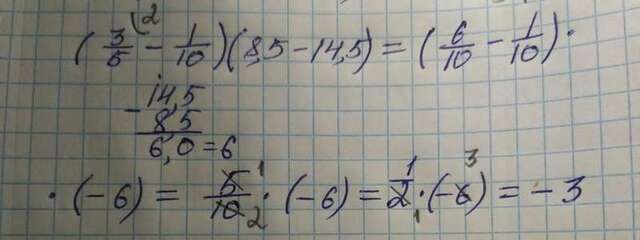 (3/5 \2 − 1/10)(8,5 − 14,5) = (6/10 − 1/10) ·
− 14,5
8,5
6,0 = 6
· (−6) = 5/10 1 2 · (−6) = 1/2 1 · (−6) 3 = −3